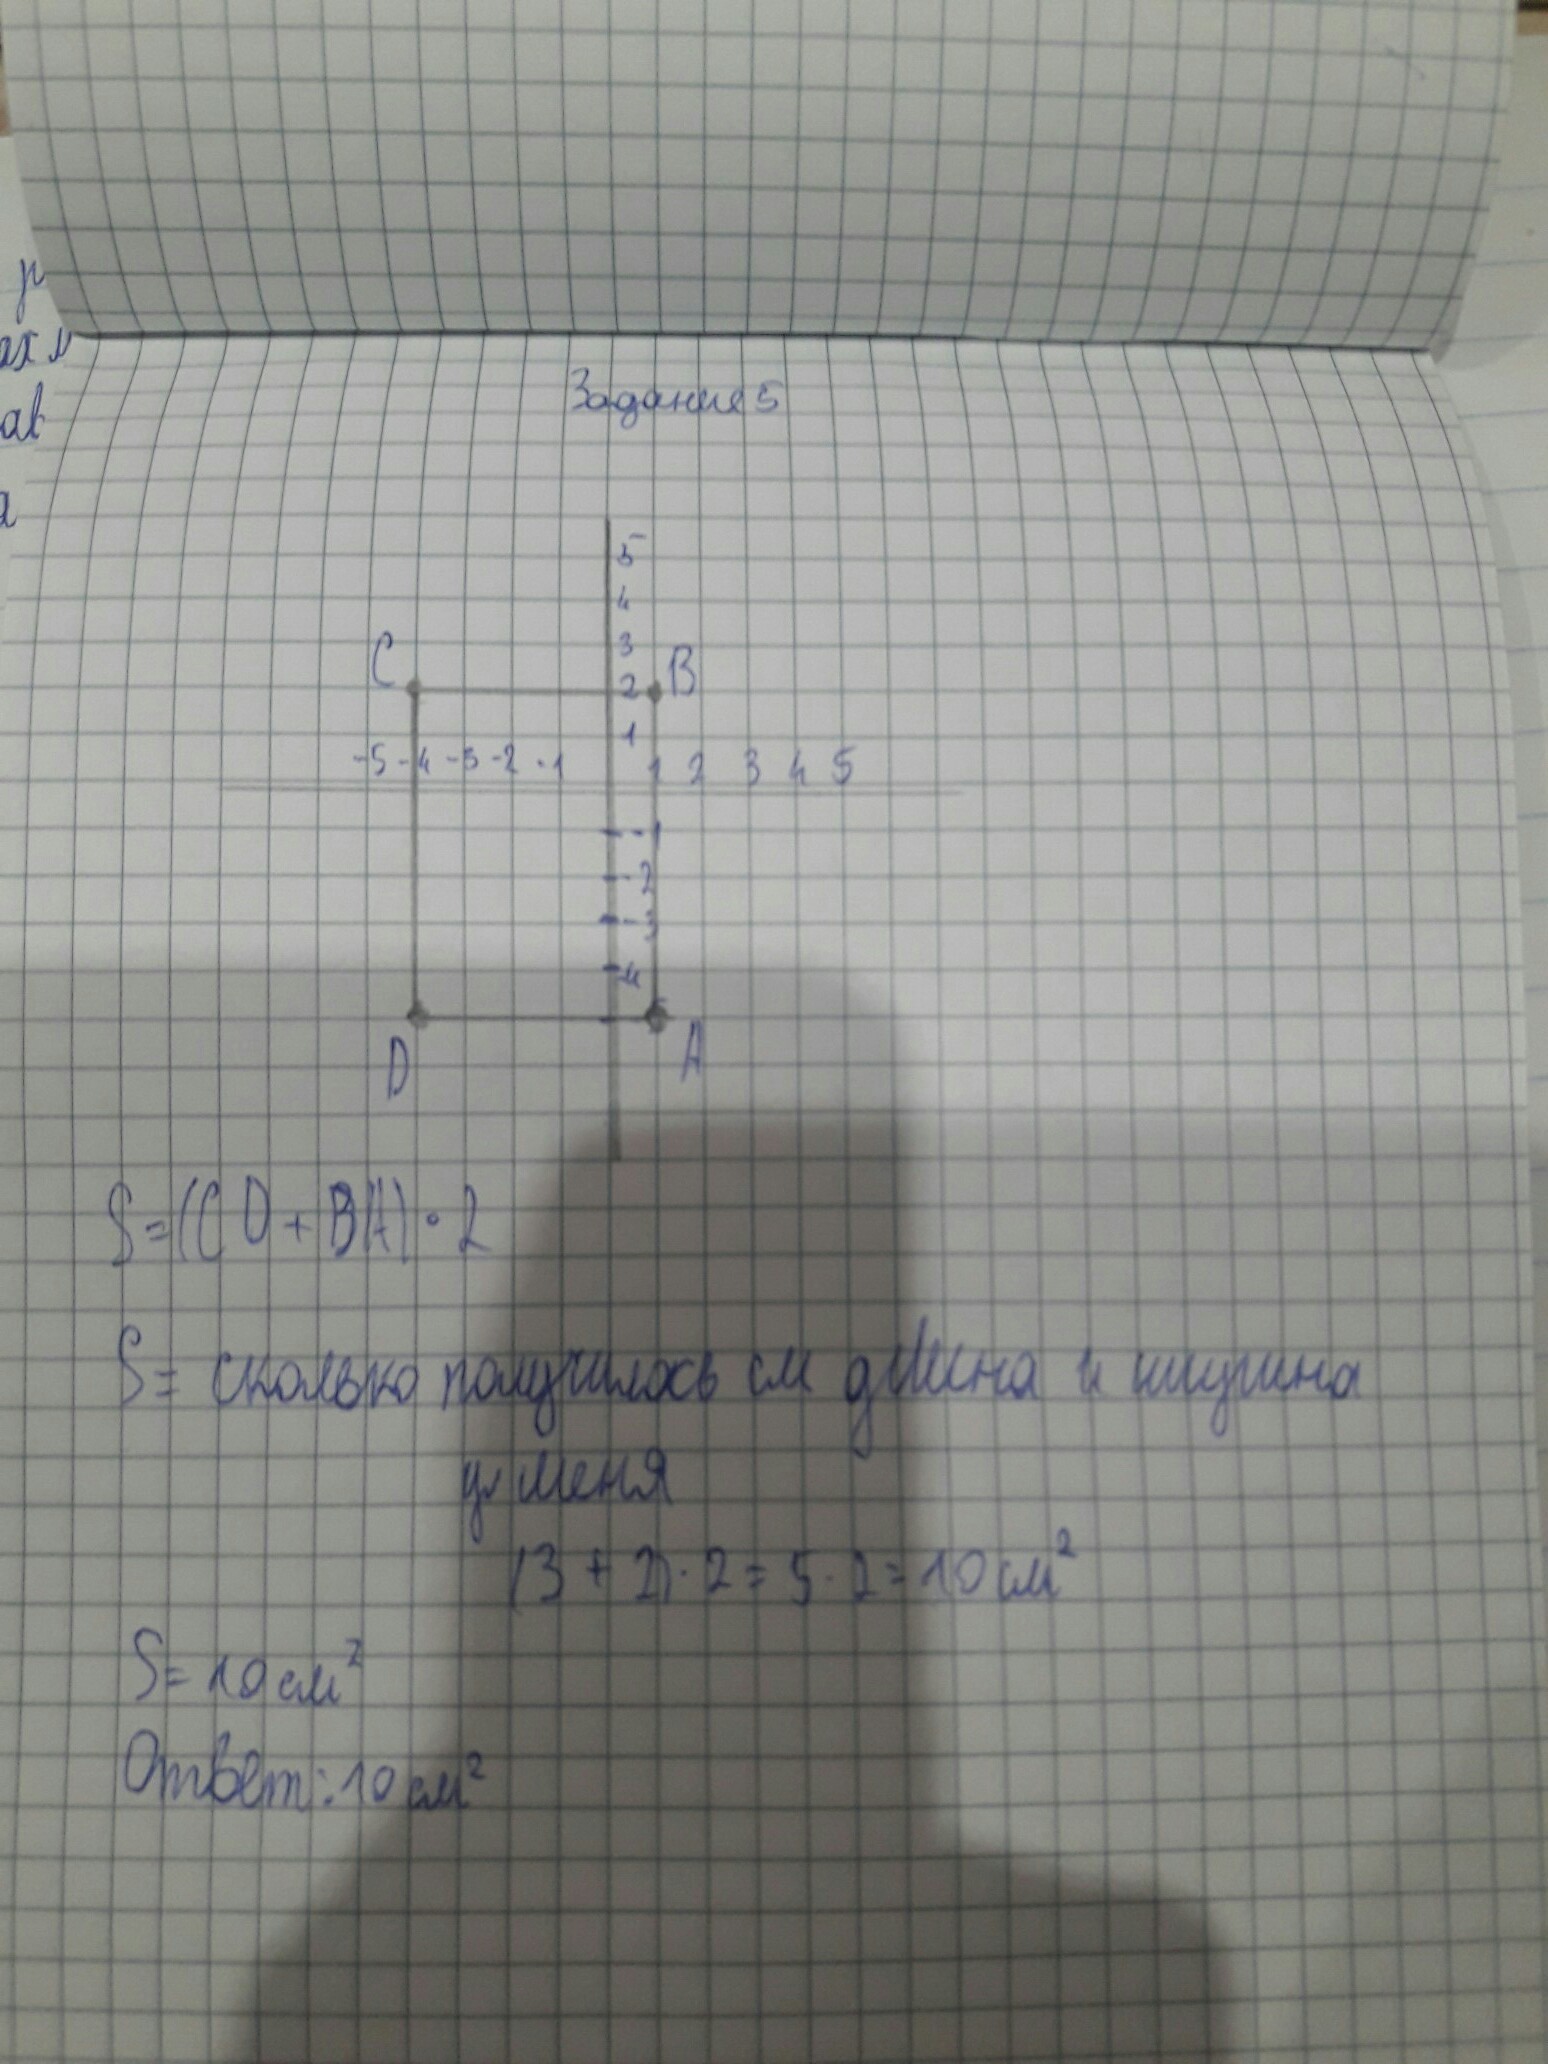 Задание 5
5
4
3
C
B
2
1
-5 -4 -3 -2 -1 1 2 3 4 5
-1
-2
-3
-4
D
A
S=(CD+BA)·2
S= сколько получилось см длина и ширина
у меня
(3+2)·2=5·2=10см²
S=10см²
Ответ:10см²